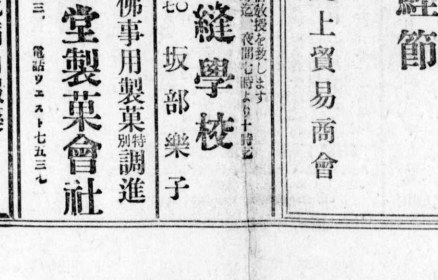 節
上貿易商會
教授を致します
夜間七時より十時迄
縫學校
坂部樂子
佛事用製菓特別調進
堂製菓會社
電話ウエスト七五三九